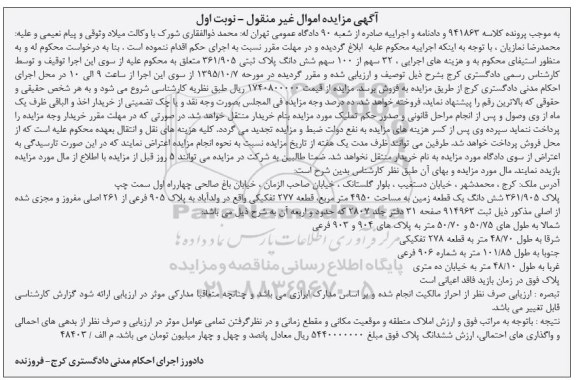 آگهی مزایده اموال غیر منقول - نوبت اول
به موجب پرونده کلاسه ۹۴۱۸۶۳ و دادنامه و اجراییه صادره از شعبه ۹۰ دادگاه عمومی تهران له: محمد ذوالفقاری شورک با وکالت میلاد وثوقی و پیام نعیمی و علیه:
محمدرضا نمازیان ، با توجه به اینکه اجراییه محکوم علیه ابلاغ گردیده و در مهلت مقرر نسبت به اجرای حکم اقدام ننموده است . بنا به درخواست محکوم له و به
منظور استیفای محکوم به و هزینه های اجرایی ، ۳۲ سهم از ۱۰۰ سهم شش دانگ پلاک ثبتی ۳۶۱/۹۰۵ متعلق به محکوم علیه از سوی این اجرا توقیف و توسط
کارشناس رسمی دادگستری کرج بشرح ذیل توصیف و ارزیابی شده و مقرر گردیده در مورحه ۱۳۹۵/۱۰/۷ از سوی این اجرا از ساعت ۹ الی ۱۰ در محل اجرای
احکام مدنی دادگستری کرج از طریق مزایده به فروش برسد. مزایده از قیمت ۱۷۴۰۸۰۰۰۰۰ ریال طبق نظریه کارشناسی شروع می شود و به هر شخص حقیقی و
حقوقی که بالاترین رقم را پیشنهاد نماید، فروخته خواهد شد. ده درصد وجه مزایده فی المجلس بصورت وجه نقد و یا چک تضمینی از خریدار اخذ و الباقی ظرف یک
ماه از وی وصول و پس از انجام مراحل قانونی و صدور حکم تملیک مورد مزایده بنام خریدار منتقل خواهد شد. در صورتی که در مهلت مقرر خریدار وجه مزایده را
پرداخت ننماید سپرده وی پس از کسر هزینه های مزایده به نفع دولت ضبط و مزایده تجدید می گردد. کلیه هزینه های نقل و انتقال بعهده محکوم علیه است که از
محل فروش پرداخت خواهد شد. طرفین می توانند ظرف مدت یک هفته از تاریخ مزایده نسبت به نحوه انجام مزایده اعتراض نمایند که در این صورت تارسیدگی به
اعتراض از سوی دادگاه مورد مزایده به نام خریدار منتقل نخواهد شد. ضمنا طالبین به شرکت در مزایده می توانند ۵ روز قبل از مزایده با اطلاع از مال مورد مزایده
بازدید نمایند. مال مورد مزایده و بهای آن طبق نظر کارشناس بدین شرح است:
آدرس ملک: کرج ، محمدشهر ، خیابان دستغیب ، بلوار گلستانک ، خیابان صاحب الزمان ، خیابان باغ صالحی چهارراه اول سمت چپ
پلاک ۳۶۱/۹۰۵ شش دانگ یک قطعه زمین به مساحت ۴۹۵۰ متر مربع، قطعه ۲۷۷ تفکیکی واقع در ولدآباد به پلاک ۹۰۵ فرعی از ۲۶۱ اصلی مفروز و مجزی شده
از اصلی مذکور ذیل ثبت ۹۱۴۹۶۳ صفحه ۳۱ دفتر جلد ۲۸۰۷ که حدود و اربعه آن به شرح ذیل می باشد:
شمالا به طول های ۵۰/۷۵ و ۵۰/۷۰ متر به پلاک های ۹۰۴ و ۹۰۳ فرعی
شرقا به طول ۴۸/۷۰ متر به قطعه ۲۷۸ تفکیکی
جنوبا به طول ۱۰۱/۸۵ متر به شماره ۹۰۶ فرعی
غربا به طول ۴۸/۱۰ متر به خیابان ده متری
پلاک فوق در زمان بازید فاقد اعیانی است
تبصره : ارزیابی صرف نظر از احراز مالکیت انجام شده و بر اساس مدارک ابرازی می باشد و چنانچه متعاقبا مدارکی موثر در ارزیابی ارائه شود گزارش کارشناسی
قابل تغییر می باشد.
نتیجه : باتوجه به مراتب فوق و ارزش املاک منطقه و موقعیت مکانی و مقطع زمانی و در نظرگرفتن تمامی عوامل موثر در ارزیابی و صرف نظر از بدهی های احمالی
و واگذاری های احتمالی، ارزش ششدانگ پلاک فوق مبلغ ۵۴۴۰۰۰۰۰۰۰ ریال معادل پانصد و چهل و چهار میلیون تومان می باشد. م الف / ۴۸۴۰۳
دادورز اجرای احکام مدنی دادگستری کرج- فروزنده
پایگاه اطلاع رسانی مناقصه و مزایده
۰۲۱-۸۸۳۴۹۶۷۰-۵